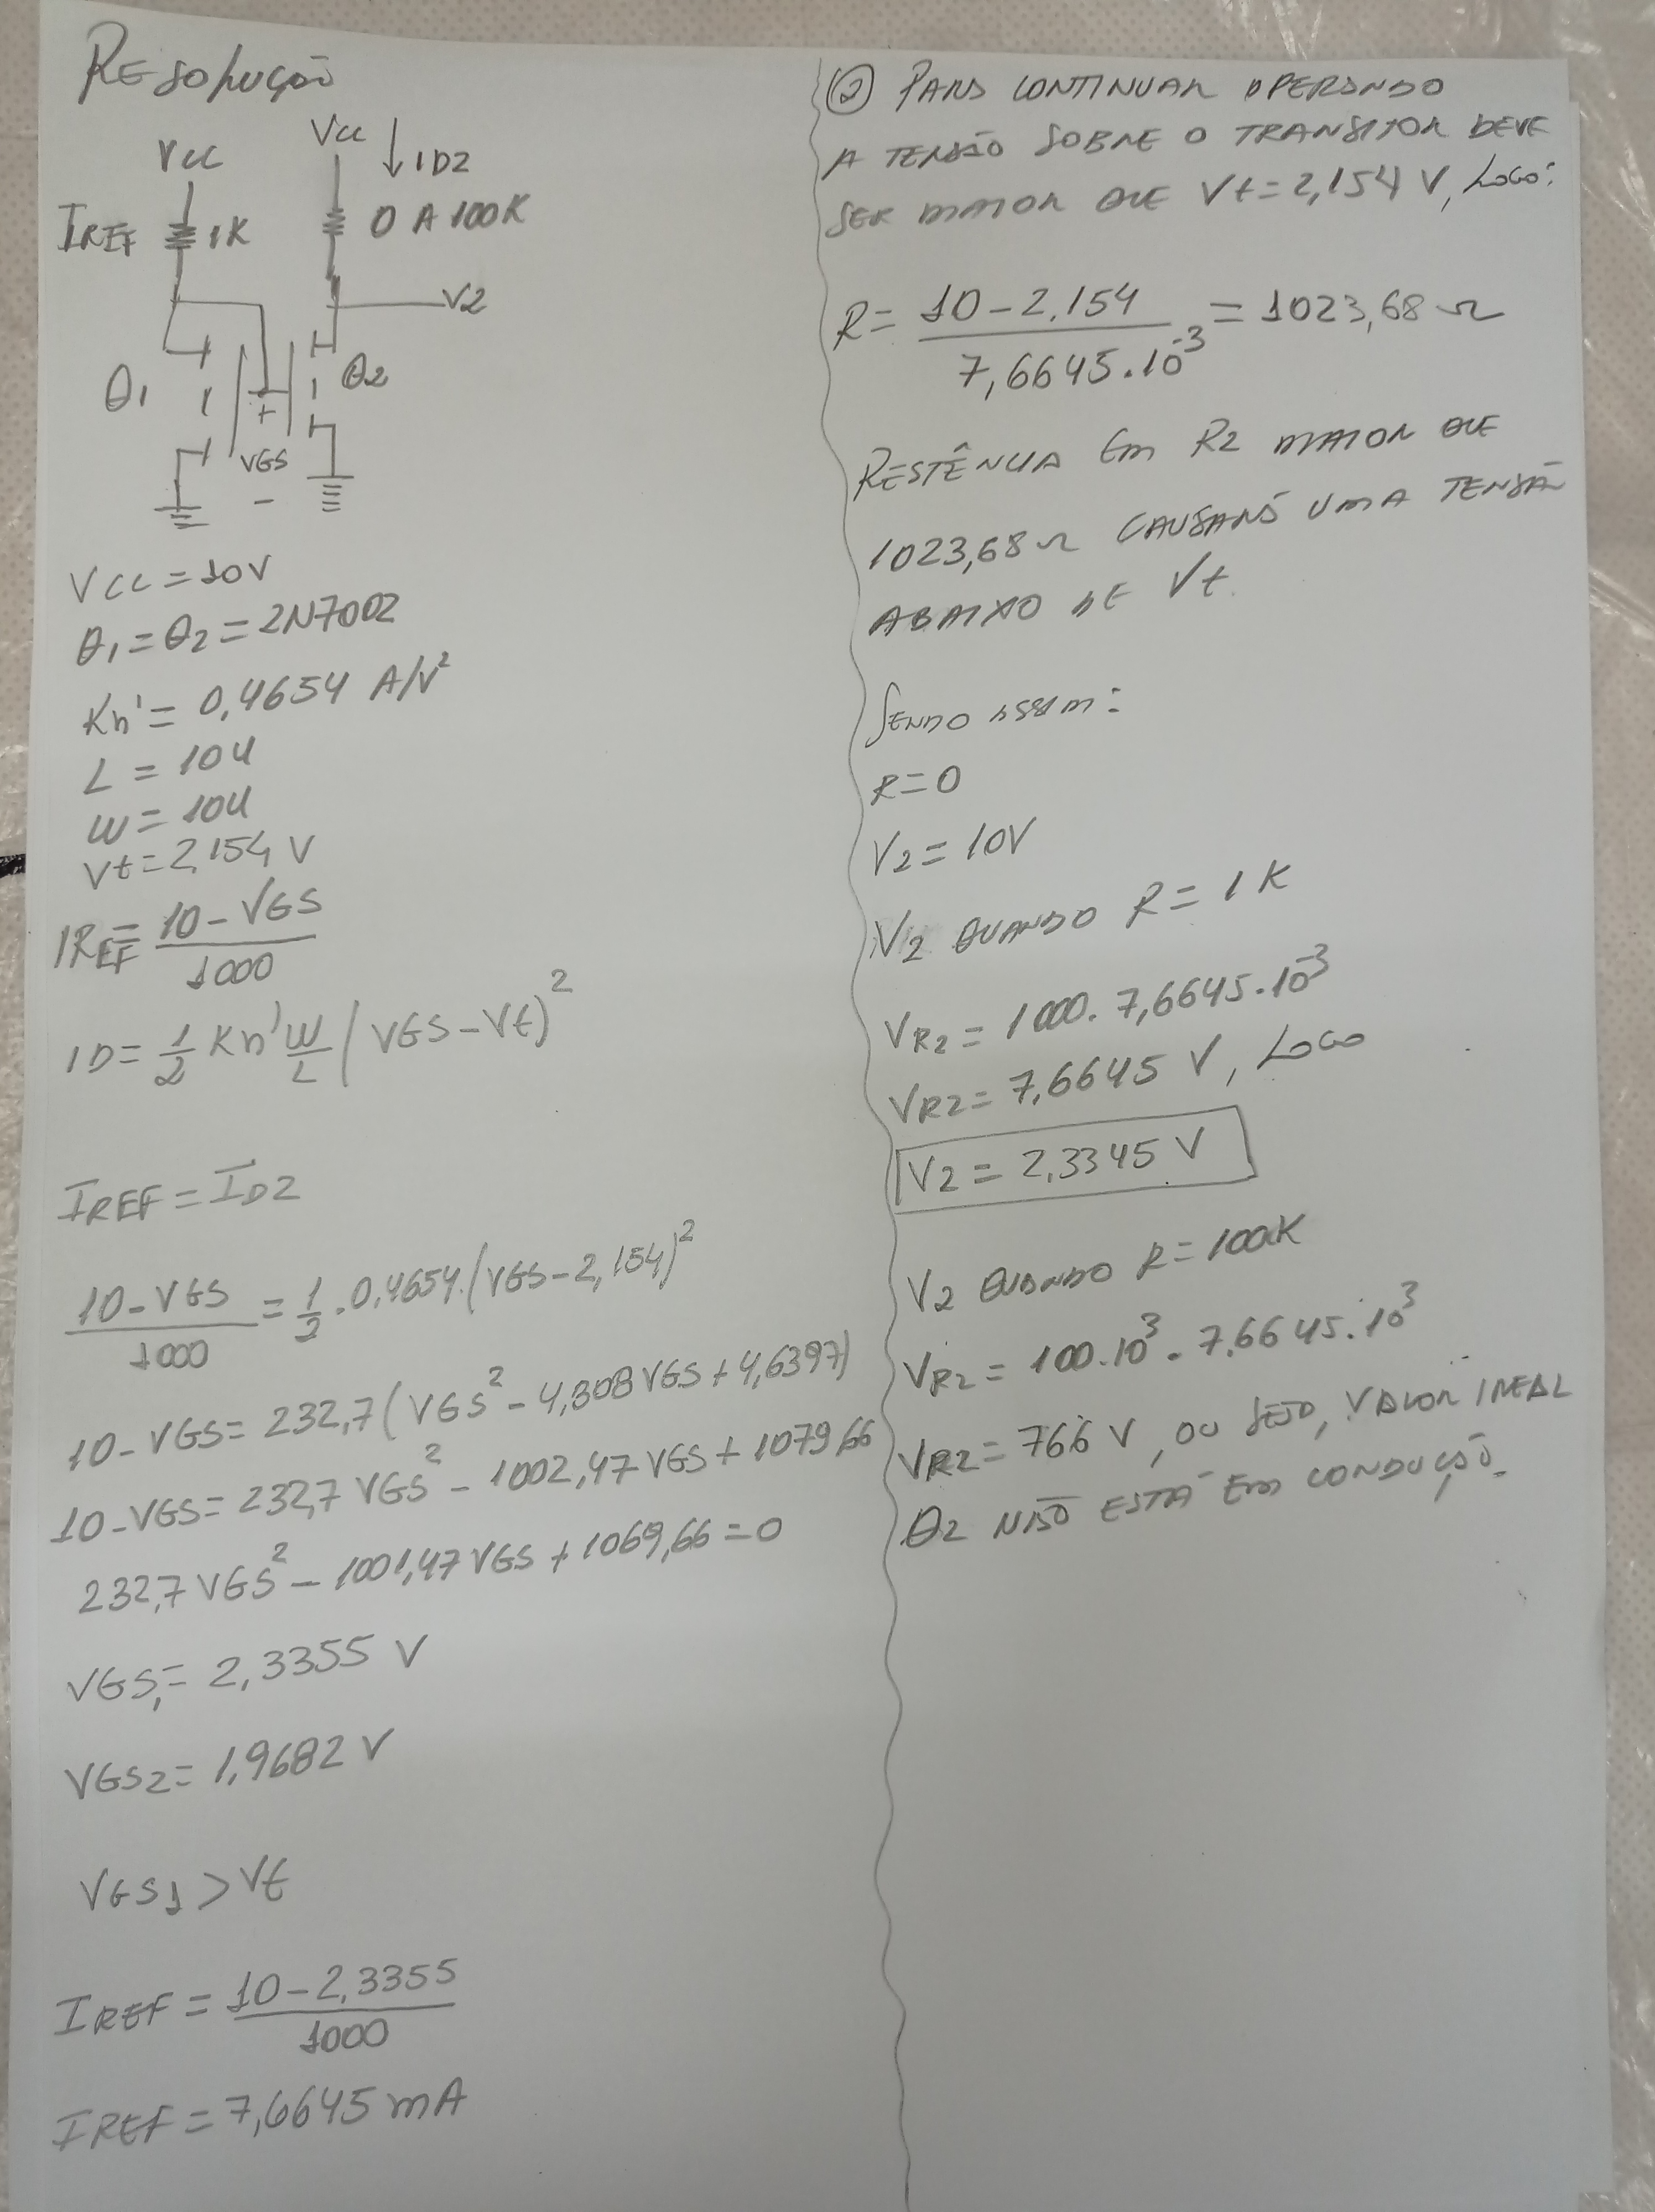 Resolução
VCC
VCC
ID2
IREF
1K
0 A 100K
V2
Q1
Q2
+
VGS
-
VCC = 10V
Q1 = Q2 = 2N7002
Kn' = 0,4654 A/V²
L = 10u
W = 10u
Vt = 2,154 V
IREF = (10 - VGS)/1000
ID = 1/2 Kn' W/L (VGS - Vt)²
IREF = ID2
(10 - VGS)/1000 = 1/2 . 0,4654.(VGS - 2,154)²
10 - VGS = 232,7 (VGS² - 4,308 VGS + 4,6397)
10 - VGS = 232,7 VGS² - 1002,47 VGS + 1079,66
232,7 VGS² - 1001,47 VGS + 1069,66 = 0
VGS1 = 2,3355 V
VGS2 = 1,9682 V
VGS1 > Vt
IREF = (10 - 2,3355)/1000
IREF = 7,6645 mA
② PARA CONTINUAR OPERANDO
A TENSÃO SOBRE O TRANSITOR DEVE
SER MAIOR QUE Vt = 2,154 V, LOGO:
R = (10 - 2,154)/(7,6645.10⁻³) = 1023,68 Ω
RESTÊNCIA EM R2 MAIOR QUE
1023,68 Ω CAUSARÁ UMA TENSÃO
ABAIXO DE Vt.
SENDO ASSIM:
R = 0
V2 = 10V
V2 QUANDO R = 1K
VR2 = 1000. 7,6645.10⁻³
VR2 = 7,6645 V, LOGO
V2 = 2,3345 V
V2 QUANDO R = 100K
VR2 = 100.10³ . 7,6645.10³
VR2 = 766 V, OU SEJA, VALOR IREAL
Q2 NÃO ESTÁ EM CONDUÇÃO.